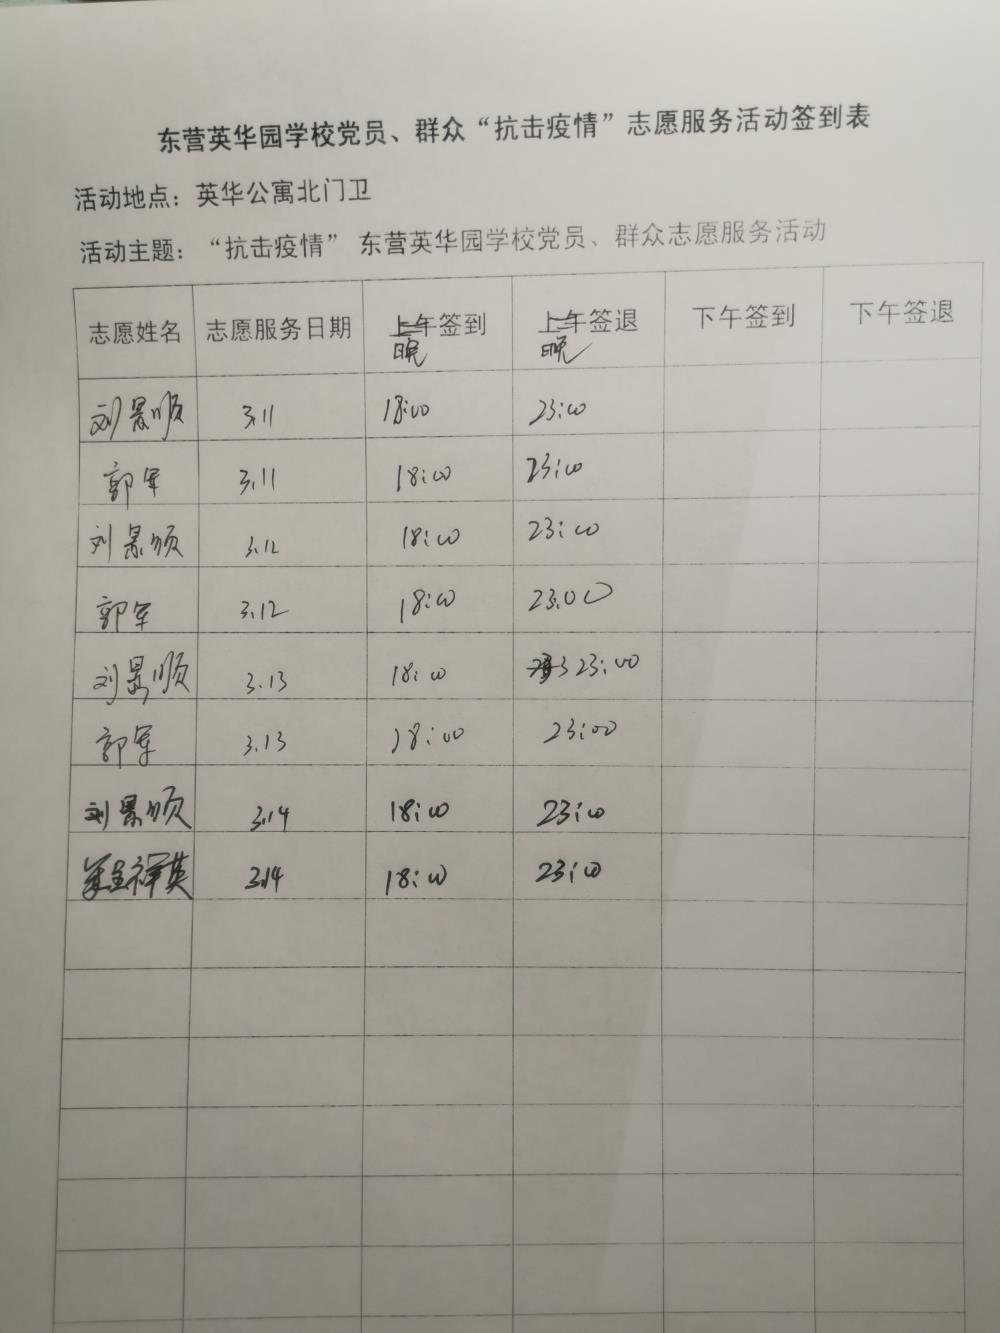 东营英华园学校党员、群众“抗击疫情”志愿服务活动签到表
活动地点：英华公寓北门卫
活动主题：“抗击疫情” 东营英华园学校党员、群众志愿服务活动
志愿姓名 志愿服务日期 上午签到 上午签退 下午签到 下午签退
晚 晚
刘景顺 3.11 18:00 23:00
郭军 3.11 18:00 23:00
刘景顺 3.12 18:00 23:00
郭军 3.12 18:00 23:00
刘景顺 3.13 18:00 23:00
郭军 3.13 18:00 23:00
刘景顺 3.14 18:00 23:00
3.14 18:00 23:00